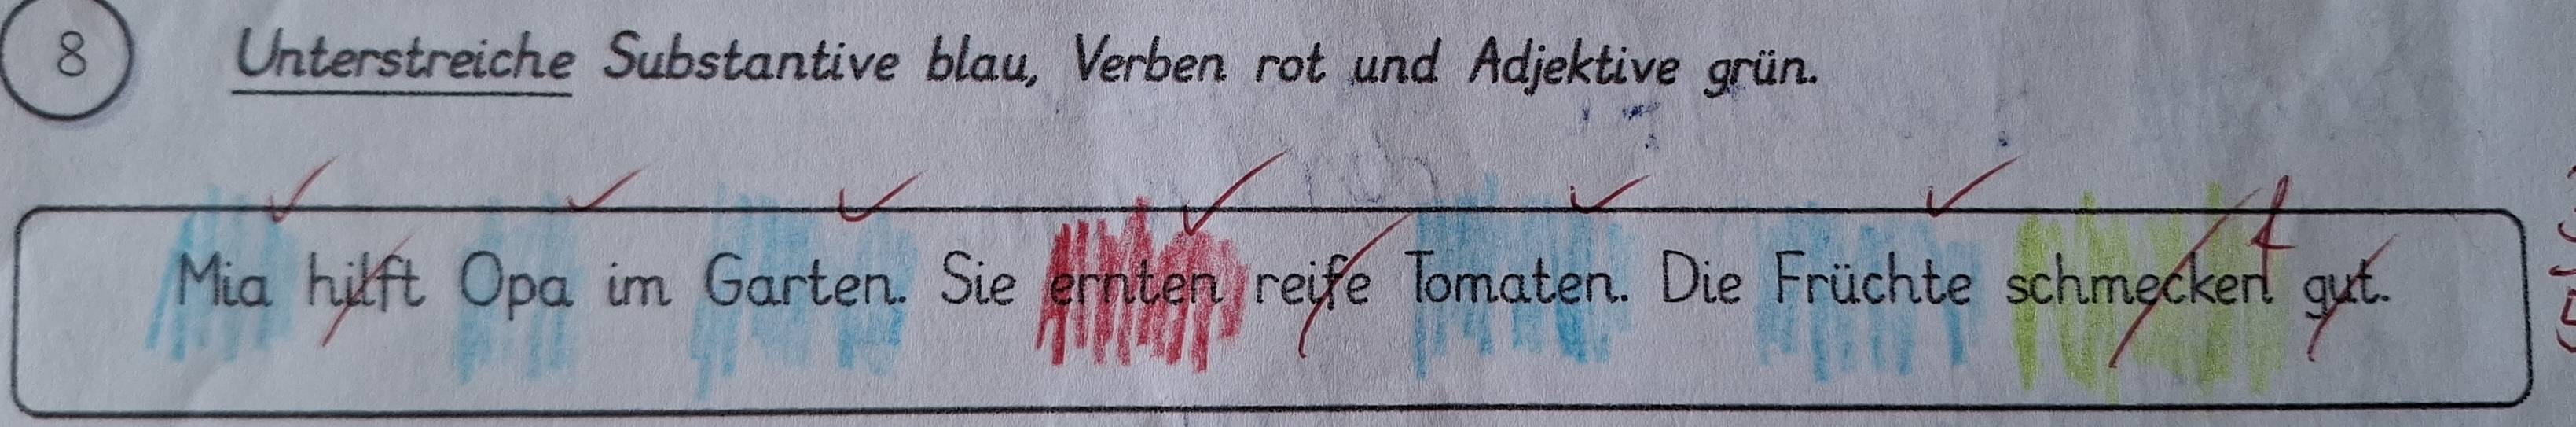 8 Unterstreiche Substantive blau, Verben rot und Adjektive grün.
Mia hilft Opa im Garten. Sie ernten reife Tomaten. Die Früchte schmecken gut.